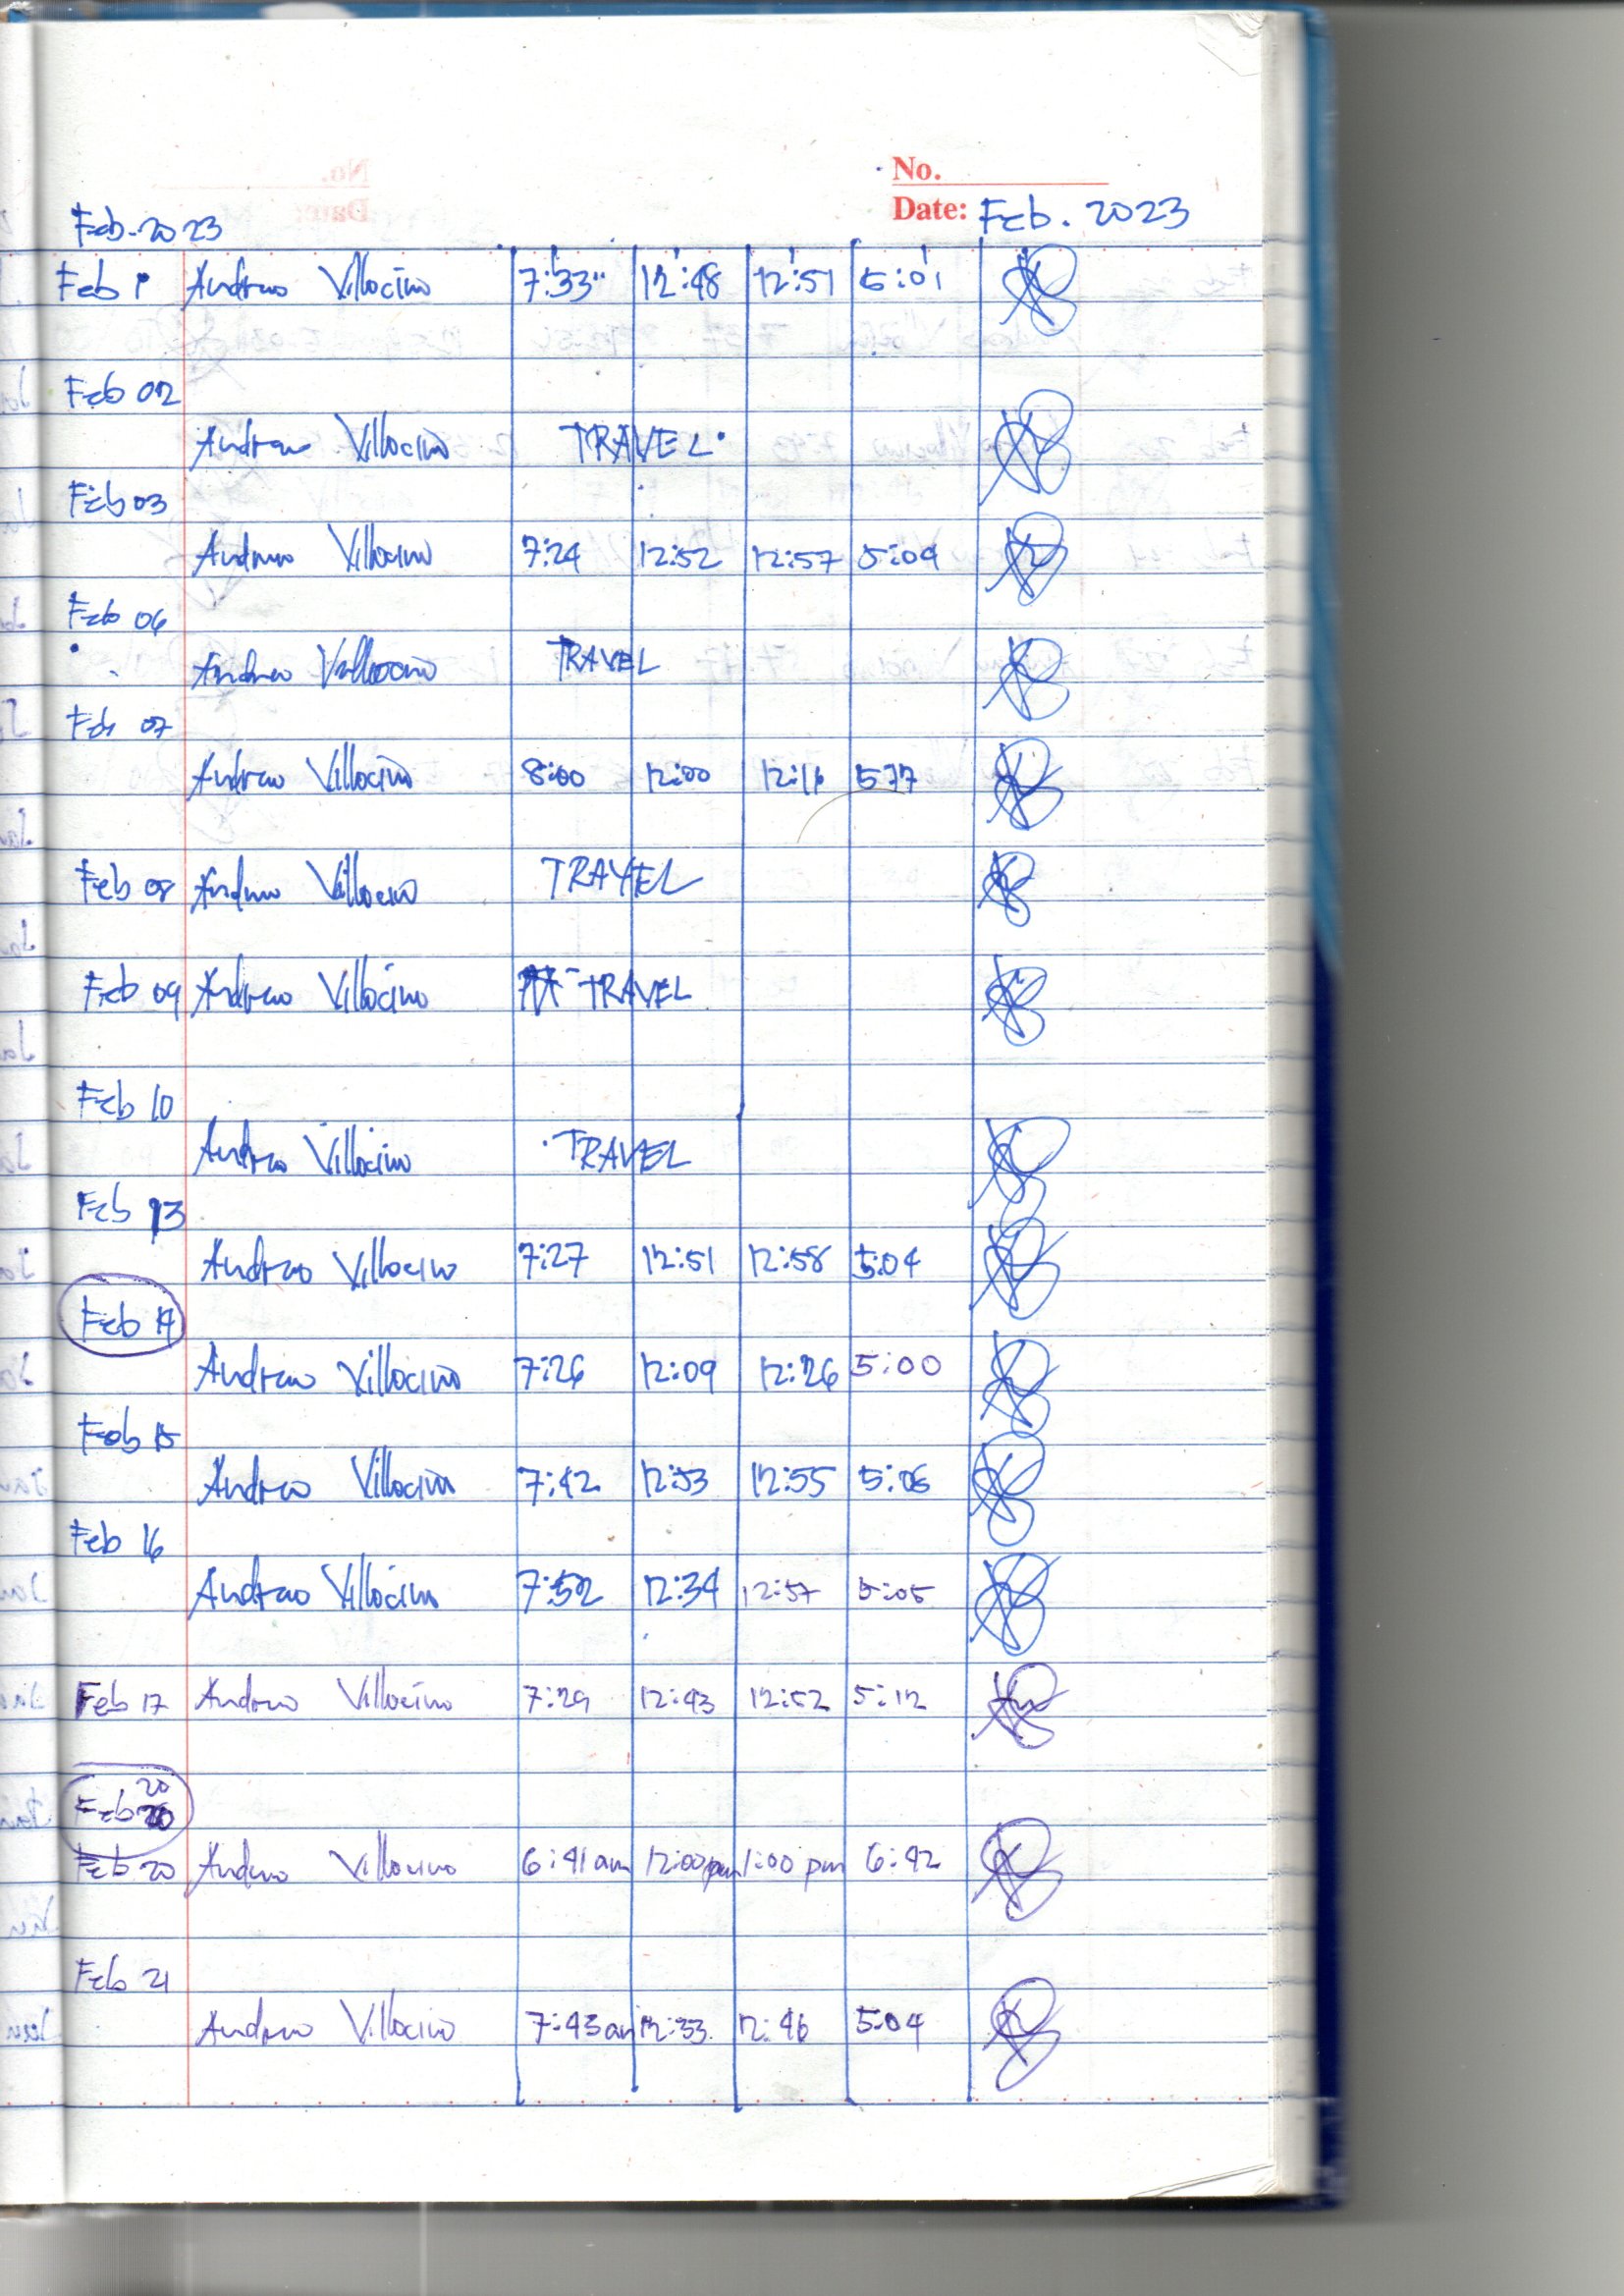 No.
Date: Feb. 2023
Feb. 2023
Feb 1 Andrew Villocino 7:33 12:48 12:51 5:01
Feb 02
Andrew Villocino TRAVEL
Feb 03
Andrew Villocino 7:24 12:52 12:57 5:04
Feb 06
Andrew Villocino TRAVEL
Feb 07
Andrew Villocino 8:00 12:00 12:16
Feb 08 Andrew Villocino TRAVEL
Feb 09 Andrew Villocino TRAVEL
Feb 10
Andrew Villocino TRAVEL
Feb 13
Andrew Villocino 7:27 12:51 12:58 5:04
Feb 14
Andrew Villocino 7:26 12:09 12:26 5:00
Feb 15
Andrew Villocino 7:42 12:53 12:55 5:06
Feb 16
Andrew Villocino 7:52 12:34 12:57 5:05
Feb 17 Andrew Villocino 7:29 12:43 12:52 5:12
20
Feb 20
Feb 20 Andrew Villocino 6:41 am 12:00 pm 1:00 pm 6:42
Feb 21
Andrew Villocino 7:43 am 12:33 12:46 5:04